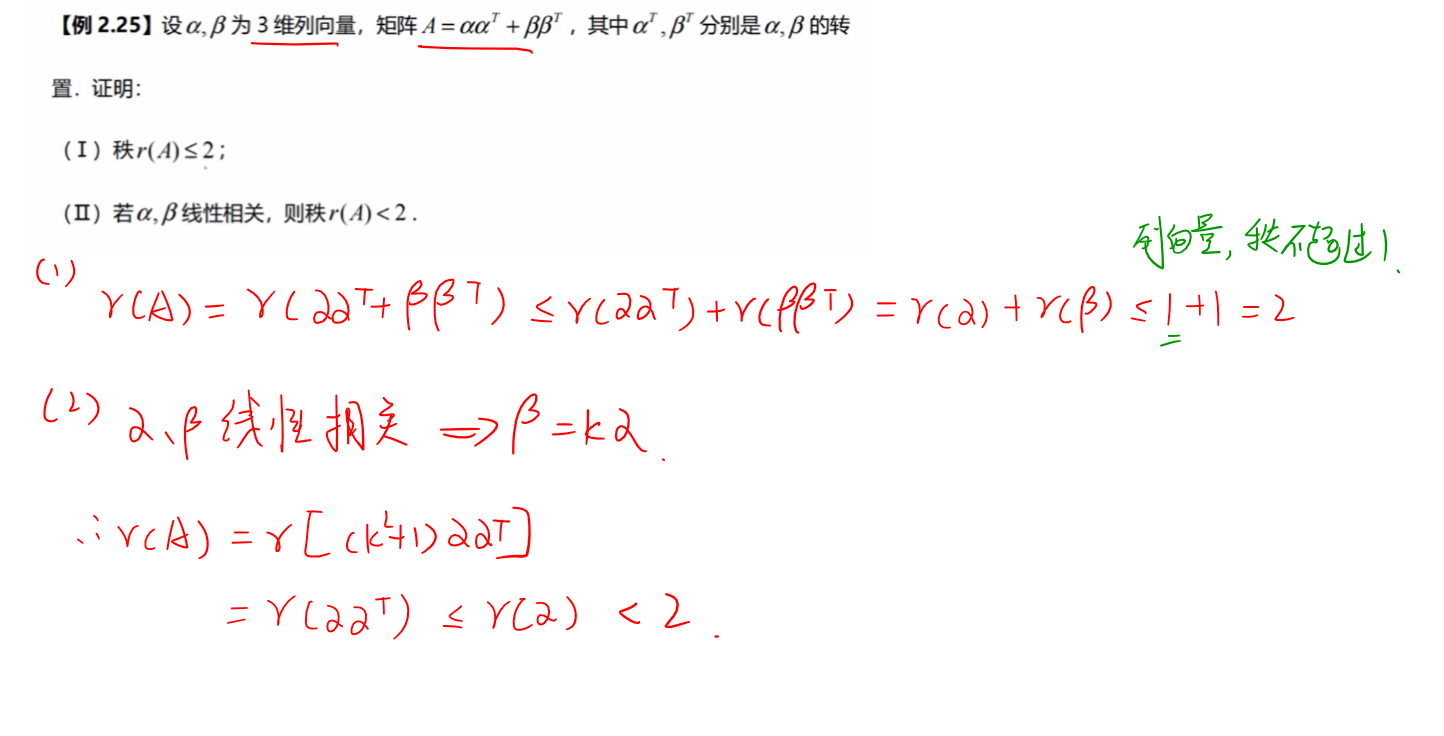 【例 2.25】设 α, β 为 3 维列向量，矩阵 A = αα^T + ββ^T ，其中 α^T , β^T 分别是 α, β 的转
置．证明：
（Ⅰ）秩 r(A) ≤ 2；
（Ⅱ）若 α, β 线性相关，则秩 r(A) < 2．
列向量，秩不超过1.
(1) r(A) = r(αα^T + ββ^T) ≤ r(αα^T) + r(ββ^T) = r(α) + r(β) ≤ 1 + 1 = 2
(2) α、β 线性相关 ⟹ β = kα.
∴ r(A) = r[(k²+1)αα^T]
= r(αα^T) ≤ r(α) < 2.